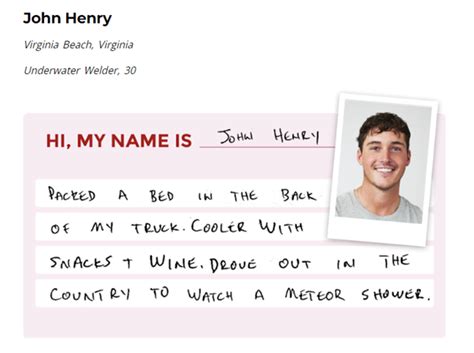 John Henry
Virginia Beach, Virginia
Underwater Welder, 30
HI, MY NAME IS JOHN HENRY
PACKED A BED IN THE BACK
OF MY TRUCK. COOLER WITH
SNACKS + WINE. DROVE OUT IN THE
COUNTRY TO WATCH A METEOR SHOWER.